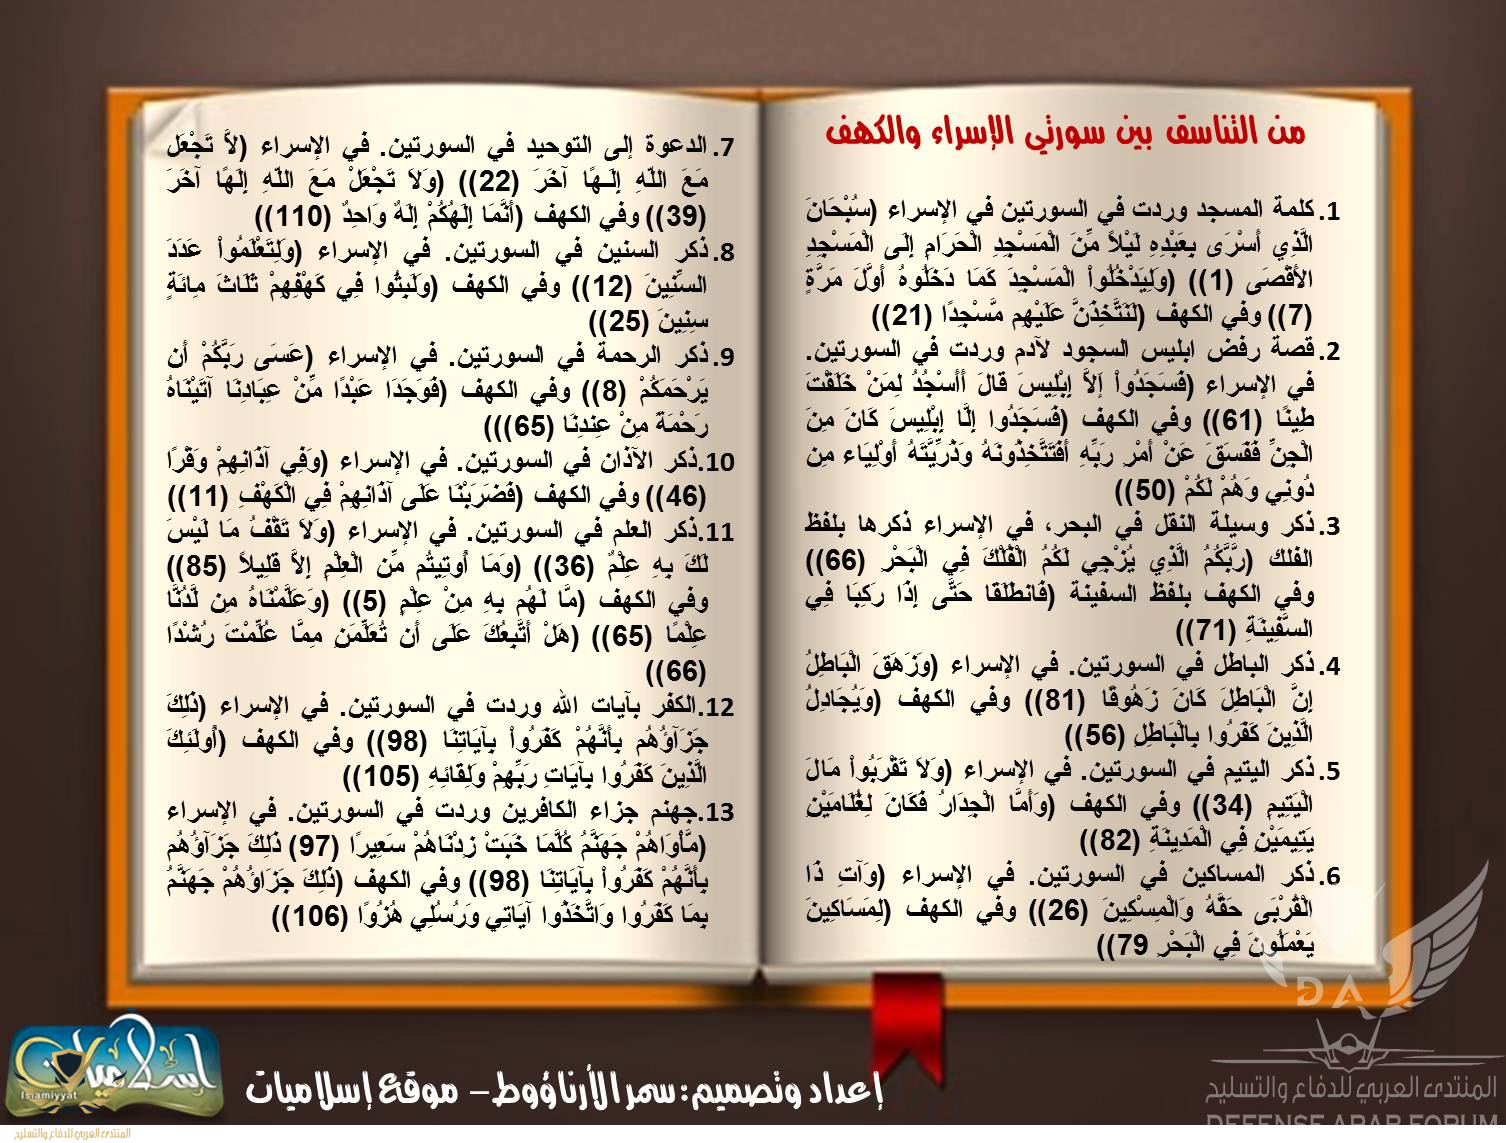 من التناسق بين سورتي الإسراء والكهف
1. كلمة المسجد وردت في السورتين في الإسراء (سُبْحَانَ
الَّذِي أَسْرَى بِعَبْدِهِ لَيْلاً مِّنَ الْمَسْجِدِ الْحَرَامِ إِلَى الْمَسْجِدِ
الأَقْصَى (1)) (وَلِيَدْخُلُواْ الْمَسْجِدَ كَمَا دَخَلُوهُ أَوَّلَ مَرَّةٍ
(7)) وفي الكهف (لَنَتَّخِذَنَّ عَلَيْهِم مَّسْجِدًا (21))
2. قصة رفض ابليس السجود لآدم وردت في السورتين.
في الإسراء (فَسَجَدُواْ إَلاَّ إِبْلِيسَ قَالَ أَأَسْجُدُ لِمَنْ خَلَقْتَ
طِينًا (61)) وفي الكهف (فَسَجَدُوا إِلَّا إِبْلِيسَ كَانَ مِنَ
الْجِنِّ فَفَسَقَ عَنْ أَمْرِ رَبِّهِ أَفَتَتَّخِذُونَهُ وَذُرِّيَّتَهُ أَوْلِيَاء مِن
دُونِي وَهُمْ لَكُمْ (50))
3. ذكر وسيلة النقل في البحر، في الإسراء ذكرها بلفظ
الفلك (رَّبُّكُمُ الَّذِي يُزْجِي لَكُمُ الْفُلْكَ فِي الْبَحْرِ (66))
وفي الكهف بلفظ السفينة (فَانطَلَقَا حَتَّى إِذَا رَكِبَا فِي
السَّفِينَةِ (71))
4. ذكر الباطل في السورتين. في الإسراء (وَزَهَقَ الْبَاطِلُ
إِنَّ الْبَاطِلَ كَانَ زَهُوقًا (81)) وفي الكهف (وَيُجَادِلُ
الَّذِينَ كَفَرُوا بِالْبَاطِلِ (56))
5. ذكر اليتيم في السورتين. في الإسراء (وَلاَ تَقْرَبُواْ مَالَ
الْيَتِيمِ (34)) وفي الكهف (وَأَمَّا الْجِدَارُ فَكَانَ لِغُلَامَيْنِ
يَتِيمَيْنِ فِي الْمَدِينَةِ (82))
6. ذكر المساكين في السورتين. في الإسراء (وَآتِ ذَا
الْقُرْبَى حَقَّهُ وَالْمِسْكِينَ (26)) وفي الكهف (لِمَسَاكِينَ
يَعْمَلُونَ فِي الْبَحْرِ 79))
7. الدعوة إلى التوحيد في السورتين. في الإسراء (لاَّ تَجْعَل
مَعَ اللّهِ إِلَـهًا آخَرَ (22)) (وَلاَ تَجْعَلْ مَعَ اللّهِ إِلَهًا آخَرَ
(39)) وفي الكهف (أَنَّمَا إِلَهُكُمْ إِلَهٌ وَاحِدٌ (110))
8. ذكر السنين في السورتين. في الإسراء (وَلِتَعْلَمُواْ عَدَدَ
السِّنِينَ (12)) وفي الكهف (وَلَبِثُوا فِي كَهْفِهِمْ ثَلَاثَ مِائَةٍ
سِنِينَ (25))
9. ذكر الرحمة في السورتين. في الإسراء (عَسَى رَبُّكُمْ أَن
يَرْحَمَكُمْ (8)) وفي الكهف (فَوَجَدَا عَبْدًا مِّنْ عِبَادِنَا آتَيْنَاهُ
رَحْمَةً مِنْ عِندِنَا (65)))
10. ذكر الآذان في السورتين. في الإسراء (وَفِي آذَانِهِمْ وَقْرًا
(46)) وفي الكهف (فَضَرَبْنَا عَلَى آذَانِهِمْ فِي الْكَهْفِ (11))
11. ذكر العلم في السورتين. في الإسراء (وَلاَ تَقْفُ مَا لَيْسَ
لَكَ بِهِ عِلْمٌ (36)) (وَمَا أُوتِيتُم مِّن الْعِلْمِ إِلاَّ قَلِيلاً (85))
وفي الكهف (مَّا لَهُم بِهِ مِنْ عِلْمٍ (5)) (وَعَلَّمْنَاهُ مِن لَّدُنَّا
عِلْمًا (65)) (هَلْ أَتَّبِعُكَ عَلَى أَن تُعَلِّمَنِ مِمَّا عُلِّمْتَ رُشْدًا
(66))
12. الكفر بآيات الله وردت في السورتين. في الإسراء (ذَلِكَ
جَزَآؤُهُم بِأَنَّهُمْ كَفَرُواْ بِآيَاتِنَا (98)) وفي الكهف (أُولَئِكَ
الَّذِينَ كَفَرُوا بِآيَاتِ رَبِّهِمْ وَلِقَائِهِ (105))
13. جهنم جزاء الكافرين وردت في السورتين. في الإسراء
(مَّأْوَاهُمْ جَهَنَّمُ كُلَّمَا خَبَتْ زِدْنَاهُمْ سَعِيرًا (97) ذَلِكَ جَزَآؤُهُم
بِأَنَّهُمْ كَفَرُواْ بِآيَاتِنَا (98)) وفي الكهف (ذَلِكَ جَزَاؤُهُمْ جَهَنَّمُ
بِمَا كَفَرُوا وَاتَّخَذُوا آيَاتِي وَرُسُلِي هُزُوًا (106))
إعداد وتصميم: سمر الأرناؤوط – موقع إسلاميات
إسلاميات
Islamiyyat
المنتدى العربي للدفاع والتسليح
DA
المنتدى العربي للدفاع والتسليح
DEFENSE ARAB FORUM